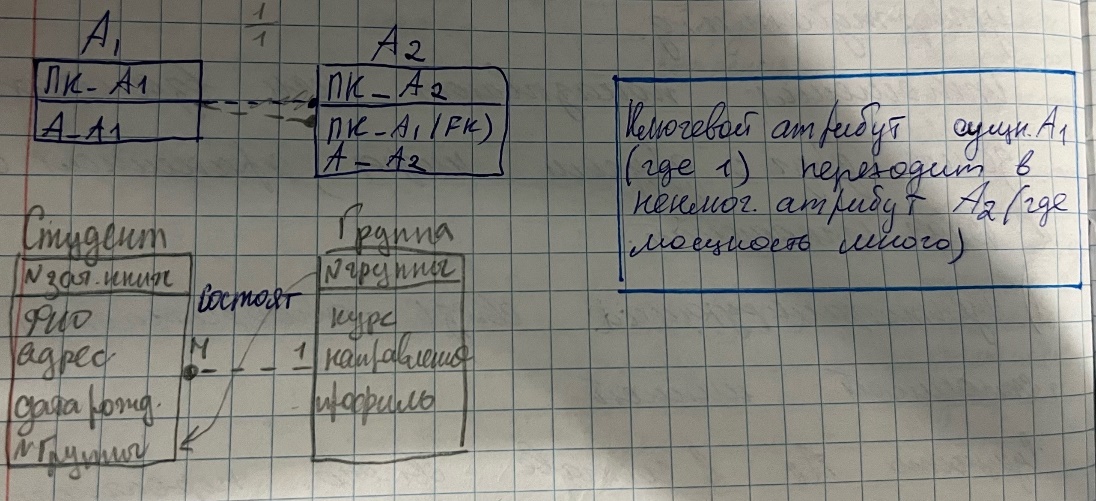 1
1
A1
ПК - А1
А - А1
A2
ПК - А2
ПК - А1 (FK)
А - А2
Ключевой атрибут сущн. А1
(где 1) переходит в
неключ. атрибут А2 (где
мощность много)
Студент
№ зач. книж
ФИО
адрес
дата рожд.
№ группы
состоят
М
1
Группа
№ группы
курс
направление
профиль